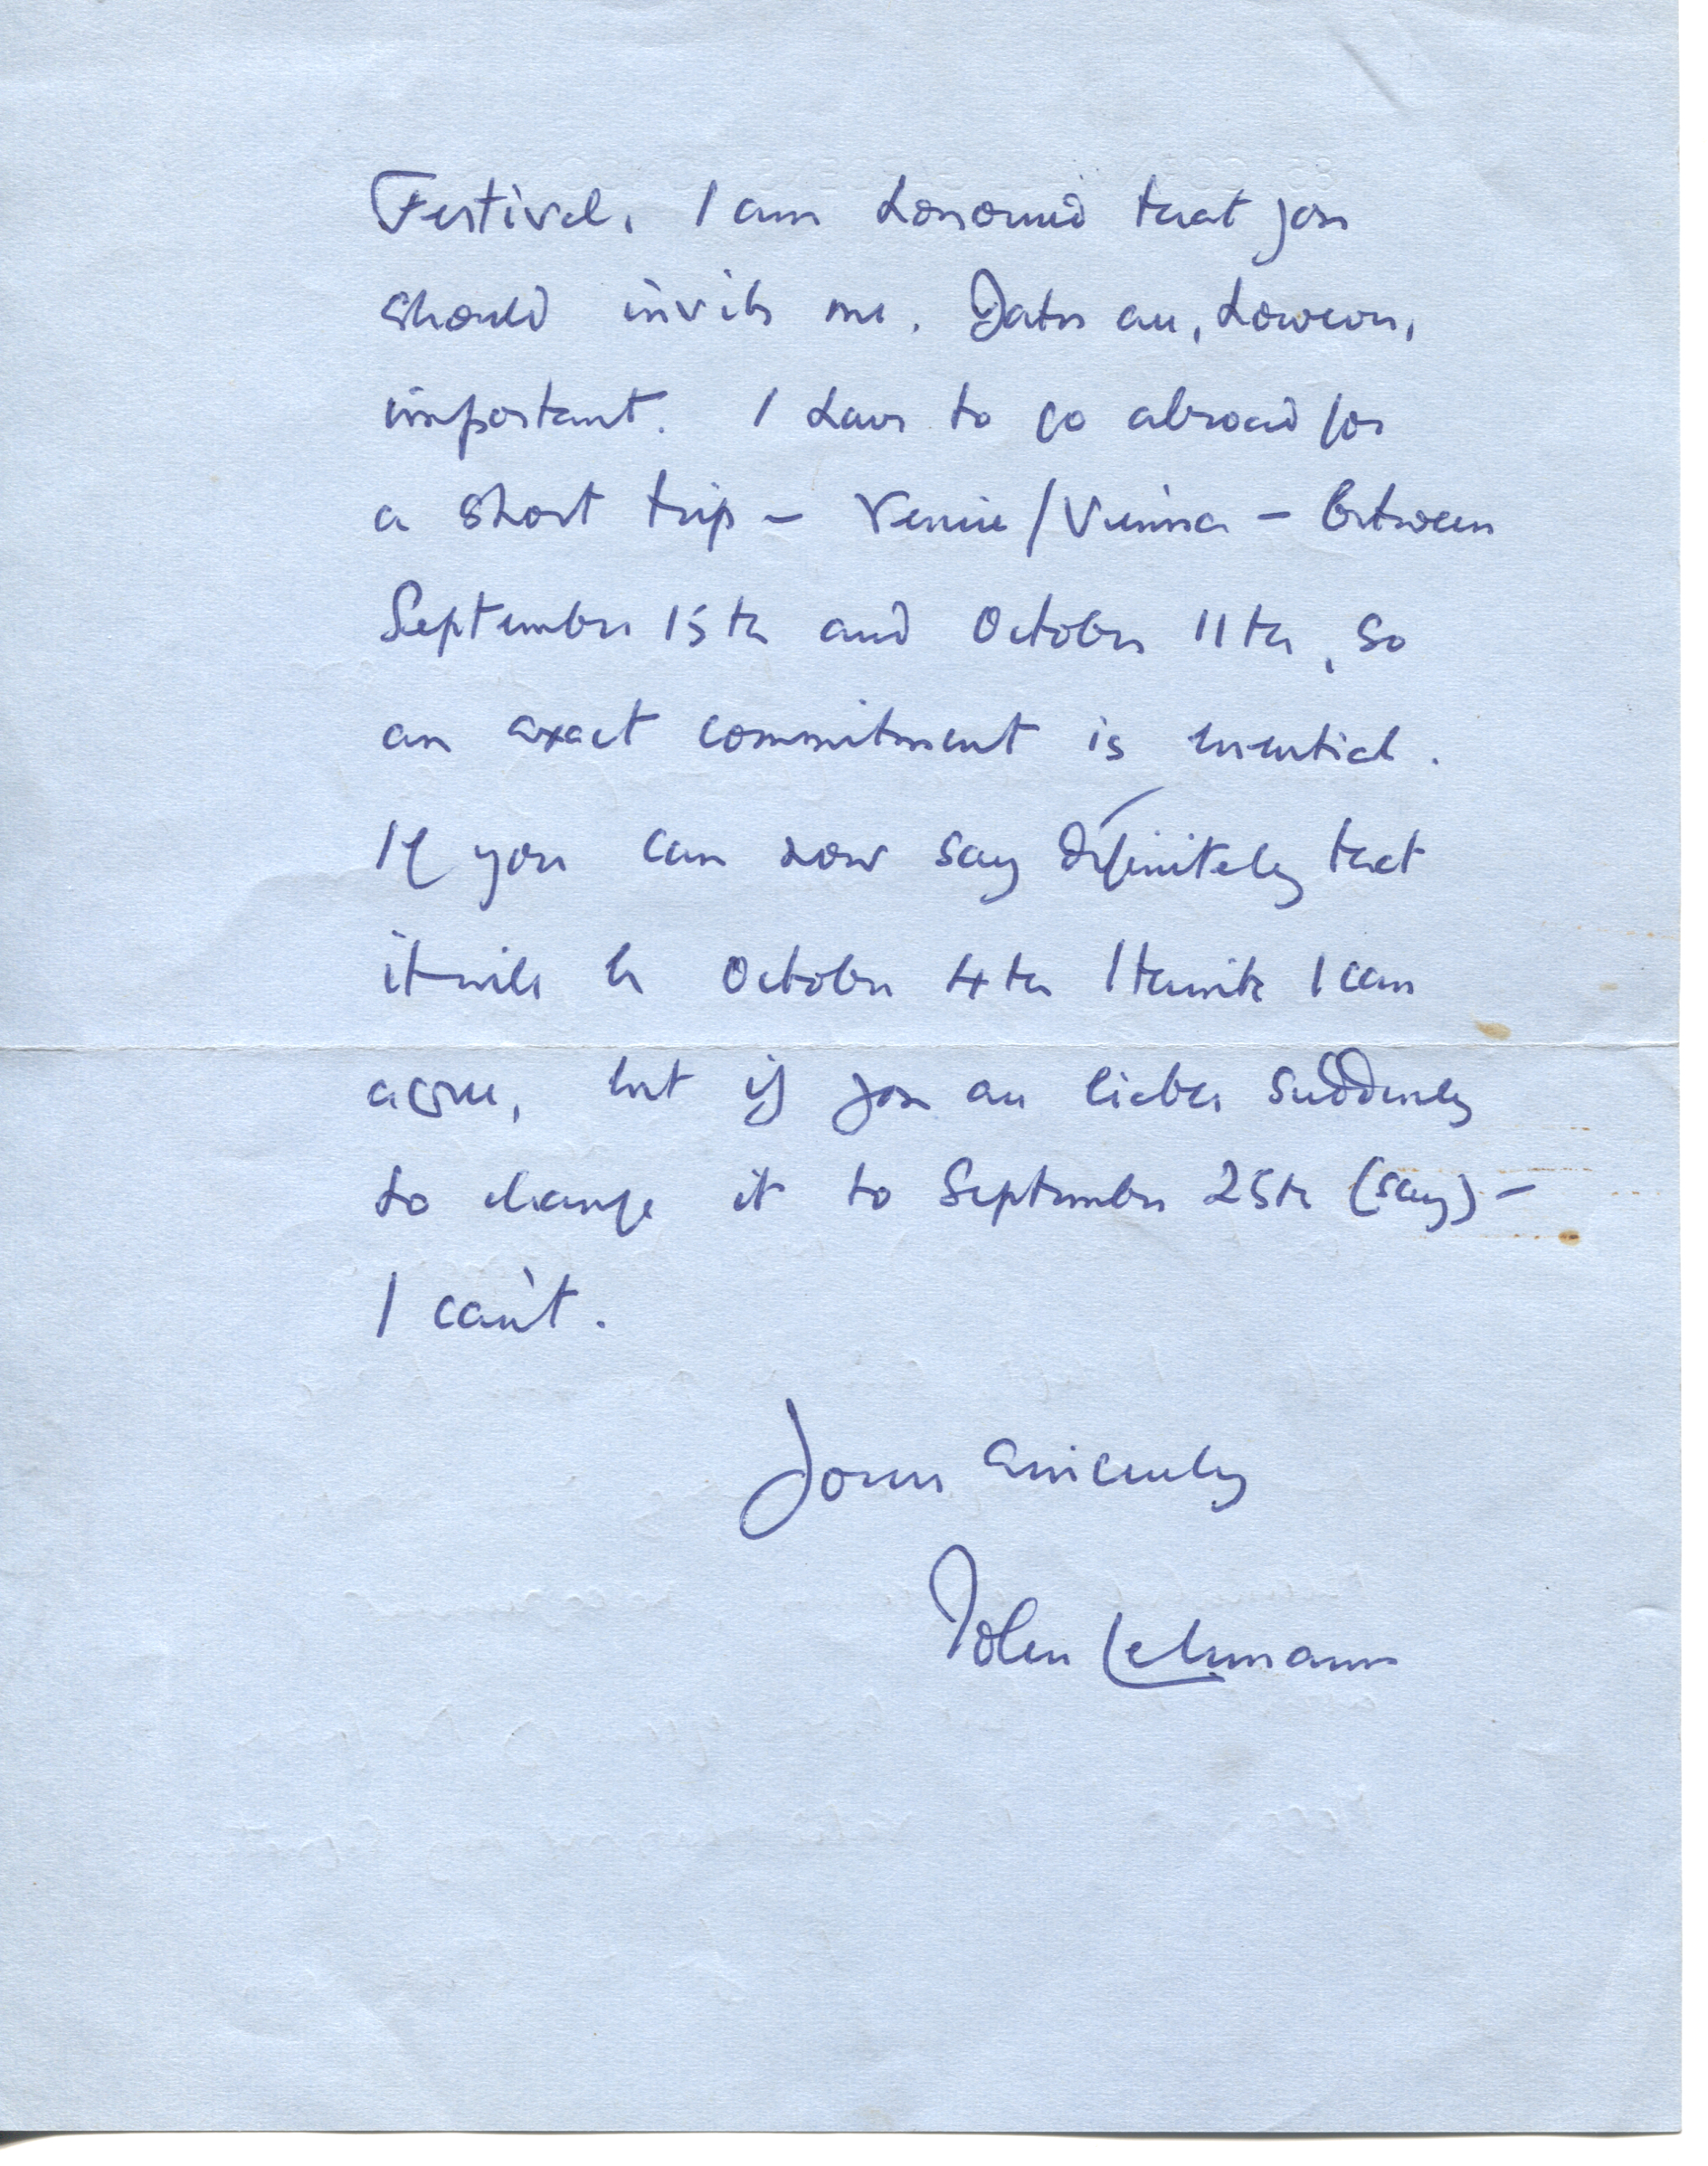 Festival. I am honoured that you
should invite me. Dates are, however,
important. I have to go abroad for
a short trip – Venice/Vienna – between
September 15th and October 11th, so
an exact commitment is essential.
If you can now say definitely that
it will be October 4th I think I can
agree, but if you are liable suddenly
to change it to September 25th (say) –
I can't.
Yours sincerely
John Lehmann